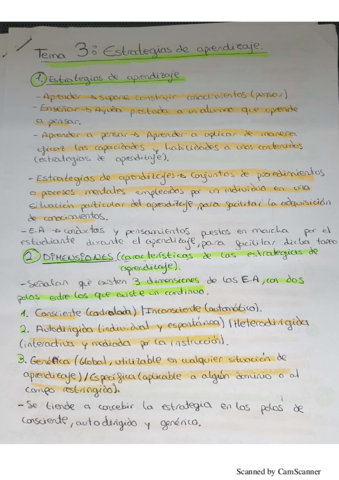 Tema 3: Estrategias de aprendizaje.
1. Estrategias de aprendizaje
- Aprender → supone construir conocimientos (pensar)
- Enseñar → Ayuda prestada a un alumno que aprende
a pensar.
- Aprender a pensar → Aprender a aplicar de manera
eficaz las capacidades y habilidades a unos contenidos
(estrategias de aprendizaje).
- Estrategias de aprendizaje → Conjuntos de procedimientos
o procesos mentales empleados por un individuo en una
situación particular del aprendizaje, para facilitar la adquisición
de conocimientos.
- E.A → conductas y pensamientos puestos en marcha por el
estudiante durante el aprendizaje, para facilitar dicha tarea
2. DIMENSIONES (características de las estrategias de
aprendizaje).
- Señalan que existen 3 dimensiones de las E.A, con dos
polos entre los que existe un continuo.
1. Consciente (controlada) / Inconsciente (automática).
2. Autodirigida (individual y espontánea) / Heterodirigida
(interactiva y mediada por la instrucción).
3. Genérica (Global, utilizable en cualquier situación de
aprendizaje) / Específica (aplicable a algún dominio o al
campo restringido).
- Se tiende a concebir la estrategia en los polos de
consciente, autodirigida y genérica.
Scanned by CamScanner